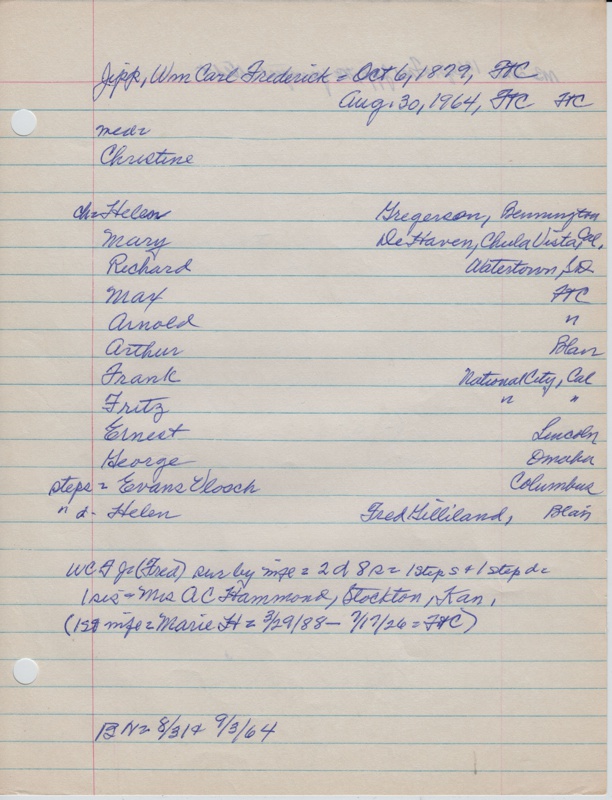 Jipp, Wm Carl Frederick = Oct 6, 1879, FtC
Aug. 30, 1964, FtC FtC
med=
Christine
ch= Helen Gregerson, Bennington
Mary DeHaven, Chula Vista, Cal,
Richard Watertown, S.D.
Max FtC
Arnold "
Arthur Blair
Frank National City, Cal
Fritz " "
Ernest Lincoln
George Omaha
steps = Evans Vlosch Columbus
" d- Helen Fred Gilliland, Blair
WCF J (Fred) sur by wife = 2 d 8 s = 1 step s + 1 step d=
1 sis = Mrs AC Hammond, Stockton, Kan,
(1st wife = Marie H = 3/29/88 - 7/17/26 = FtC)
BN= 8/31 & 9/3/64